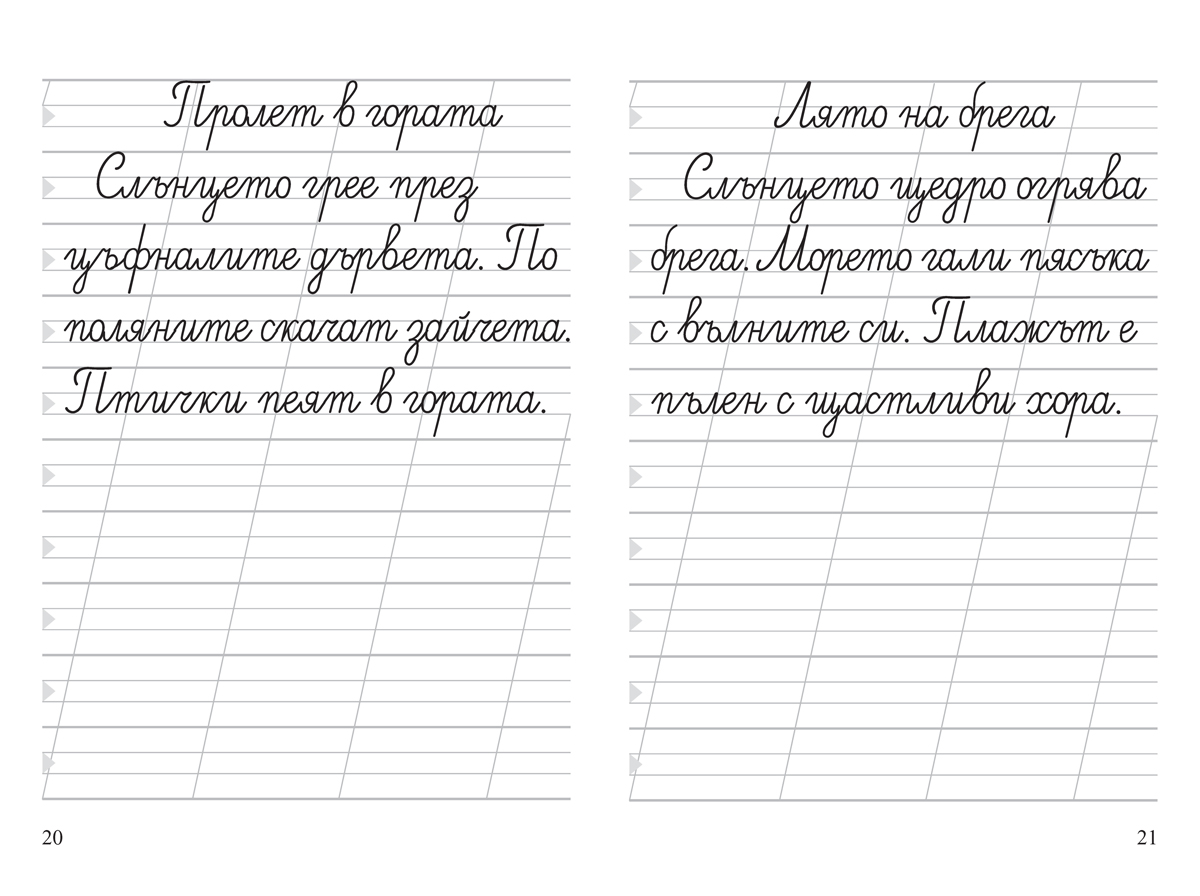 Пролет в гората
Слънцето грее през
цъфналите дървета. По
поляните скачат зайчета.
Птички пеят в гората.
20
Лято на брега
Слънцето щедро огрява
брега. Морето гали пясъка
с вълните си. Плажът е
пълен с щастливи хора.
21